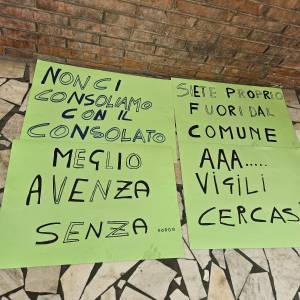 NON CI
CONSOLIAMO
CON IL
CONSOLATO
SIETE PROPRIO
FUORI DAL
COMUNE
MEGLIO
AVENZA
SENZA
AAA.....
VIGILI
CERCASI